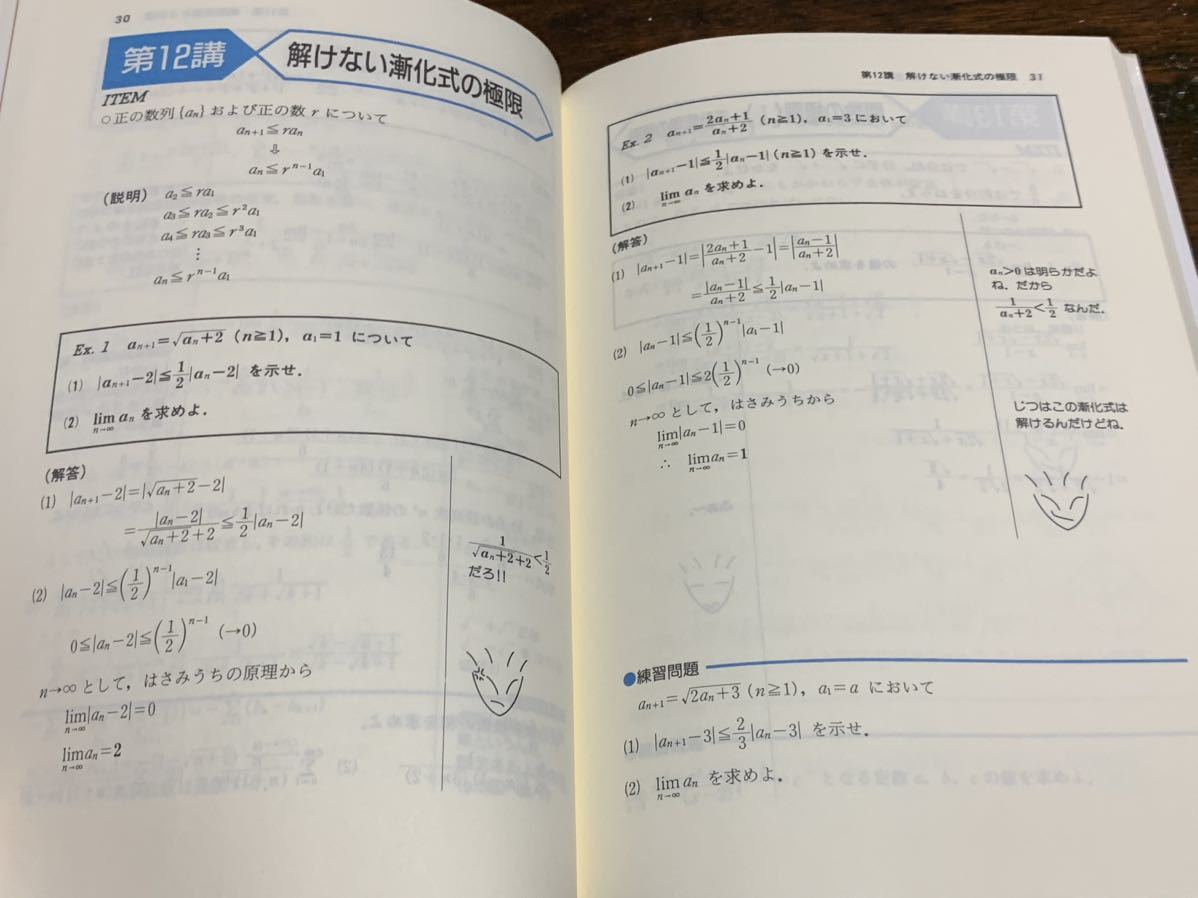 30
第12講 解けない漸化式の極限
ITEM
○正の数列{aₙ}および正の数 r について
aₙ₊₁≦raₙ
⇩
aₙ≦rⁿ⁻¹a₁
(説明) a₂≦ra₁
a₃≦ra₂≦r²a₁
a₄≦ra₃≦r³a₁
⋮
aₙ≦rⁿ⁻¹a₁
Ex. 1 aₙ₊₁=√(aₙ+2) (n≧1), a₁=1 について
(1) |aₙ₊₁−2|≦1/2|aₙ−2| を示せ.
(2) lim[n→∞] aₙ を求めよ.
(解答)
(1) |aₙ₊₁−2|=|√(aₙ+2)−2|
=|aₙ−2|/(√(aₙ+2)+2)≦1/2|aₙ−2|
1/(√(aₙ+2)+2)<1/2
だろ!!
(2) |aₙ−2|≦(1/2)ⁿ⁻¹|a₁−2|
0≦|aₙ−2|≦(1/2)ⁿ⁻¹ (→0)
n→∞として,はさみうちの原理から
lim[n→∞]|aₙ−2|=0
lim[n→∞]aₙ=2
第12講 解けない漸化式の極限 31
Ex. 2 aₙ₊₁=(2aₙ+1)/(aₙ+2) (n≧1), a₁=3 において
(1) |aₙ₊₁−1|≦1/2|aₙ−1| (n≧1) を示せ.
(2) lim[n→∞] aₙ を求めよ.
(解答)
(1) |aₙ₊₁−1|=|(2aₙ+1)/(aₙ+2)−1|=|(aₙ−1)/(aₙ+2)|
=|aₙ−1|/(aₙ+2)≦1/2|aₙ−1|
aₙ>0 は明らかだよ
ね.だから
1/(aₙ+2)<1/2 なんだ.
(2) |aₙ−1|≦(1/2)ⁿ⁻¹|a₁−1|
0≦|aₙ−1|≦2(1/2)ⁿ⁻¹ (→0)
n→∞として,はさみうちから
lim[n→∞]|aₙ−1|=0
∴ lim[n→∞]aₙ=1
じつはこの漸化式は
解けるんだけどね.
●練習問題
aₙ₊₁=√(2aₙ+3) (n≧1), a₁=a において
(1) |aₙ₊₁−3|≦2/3|aₙ−3| を示せ.
(2) lim[n→∞] aₙ を求めよ.